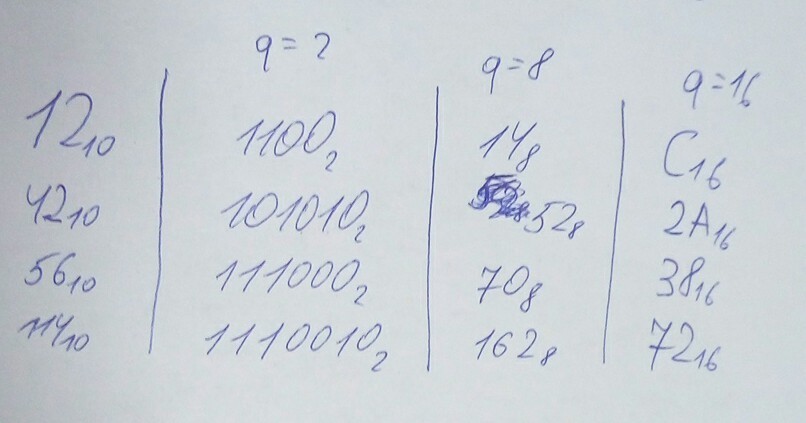 q=2 q=8 q=16
12₁₀ 1100₂ 14₈ C₁₆
42₁₀ 101010₂ 52₈ 2A₁₆
56₁₀ 111000₂ 70₈ 38₁₆
114₁₀ 1110010₂ 162₈ 72₁₆